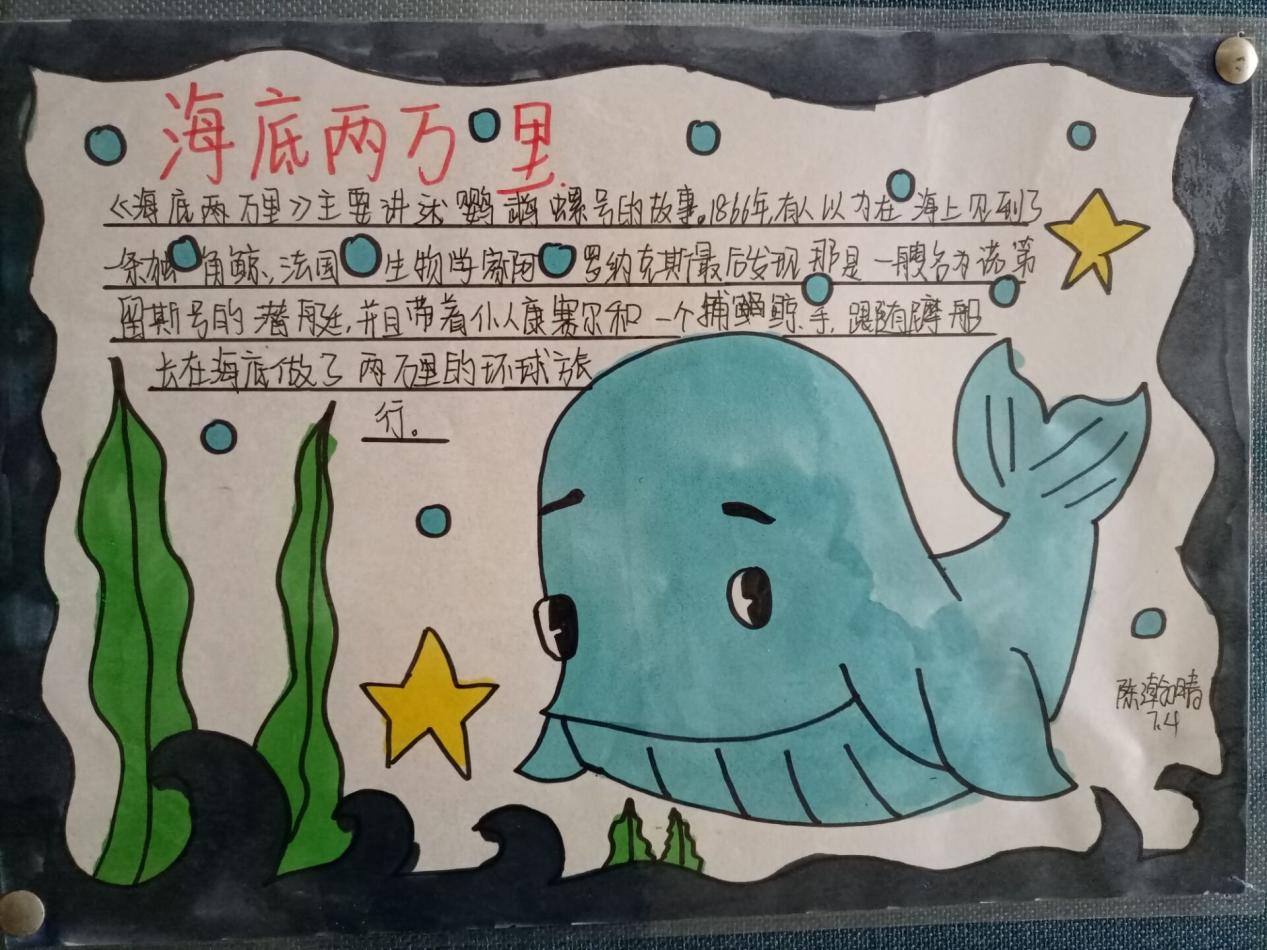 海底两万里
《海底两万里》主要讲述鹦鹉螺号的故事。1866年,有人以为在海上见到了
一条独角鲸、法国生物学家阿罗纳克斯最后发现那是一艘名为诺第
留斯号的潜艇,并且带着仆人康塞尔和一个捕鲸手,跟随
在海底做了两万里的环球旅
行。
陈瀚晴
7.4